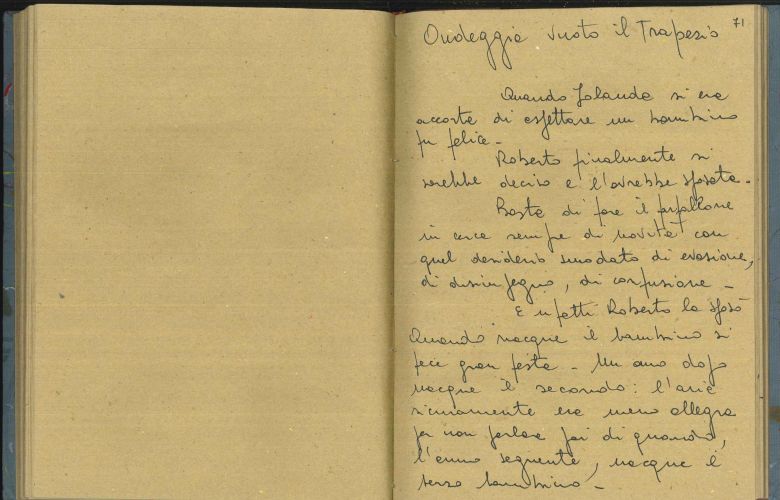 71
Ondeggia vuoto il Trapezio
Quando Jolanda si era
accorta di aspettare un bambino
fu felice -
Roberto finalmente si
sarebbe deciso e l'avrebbe sposata -
Basta di fare il farfallone
in cerca sempre di novità con
quel desiderio smodato di evasione,
di disimpegno, di confusione -
E infatti Roberto la sposò
Quando nacque il bambino si
fece gran festa - Un anno dopo
nacque il secondo: l'aria
sicuramente era meno allegra
per non parlare poi di quando,
l'anno seguente, nacque il
terzo bambino -